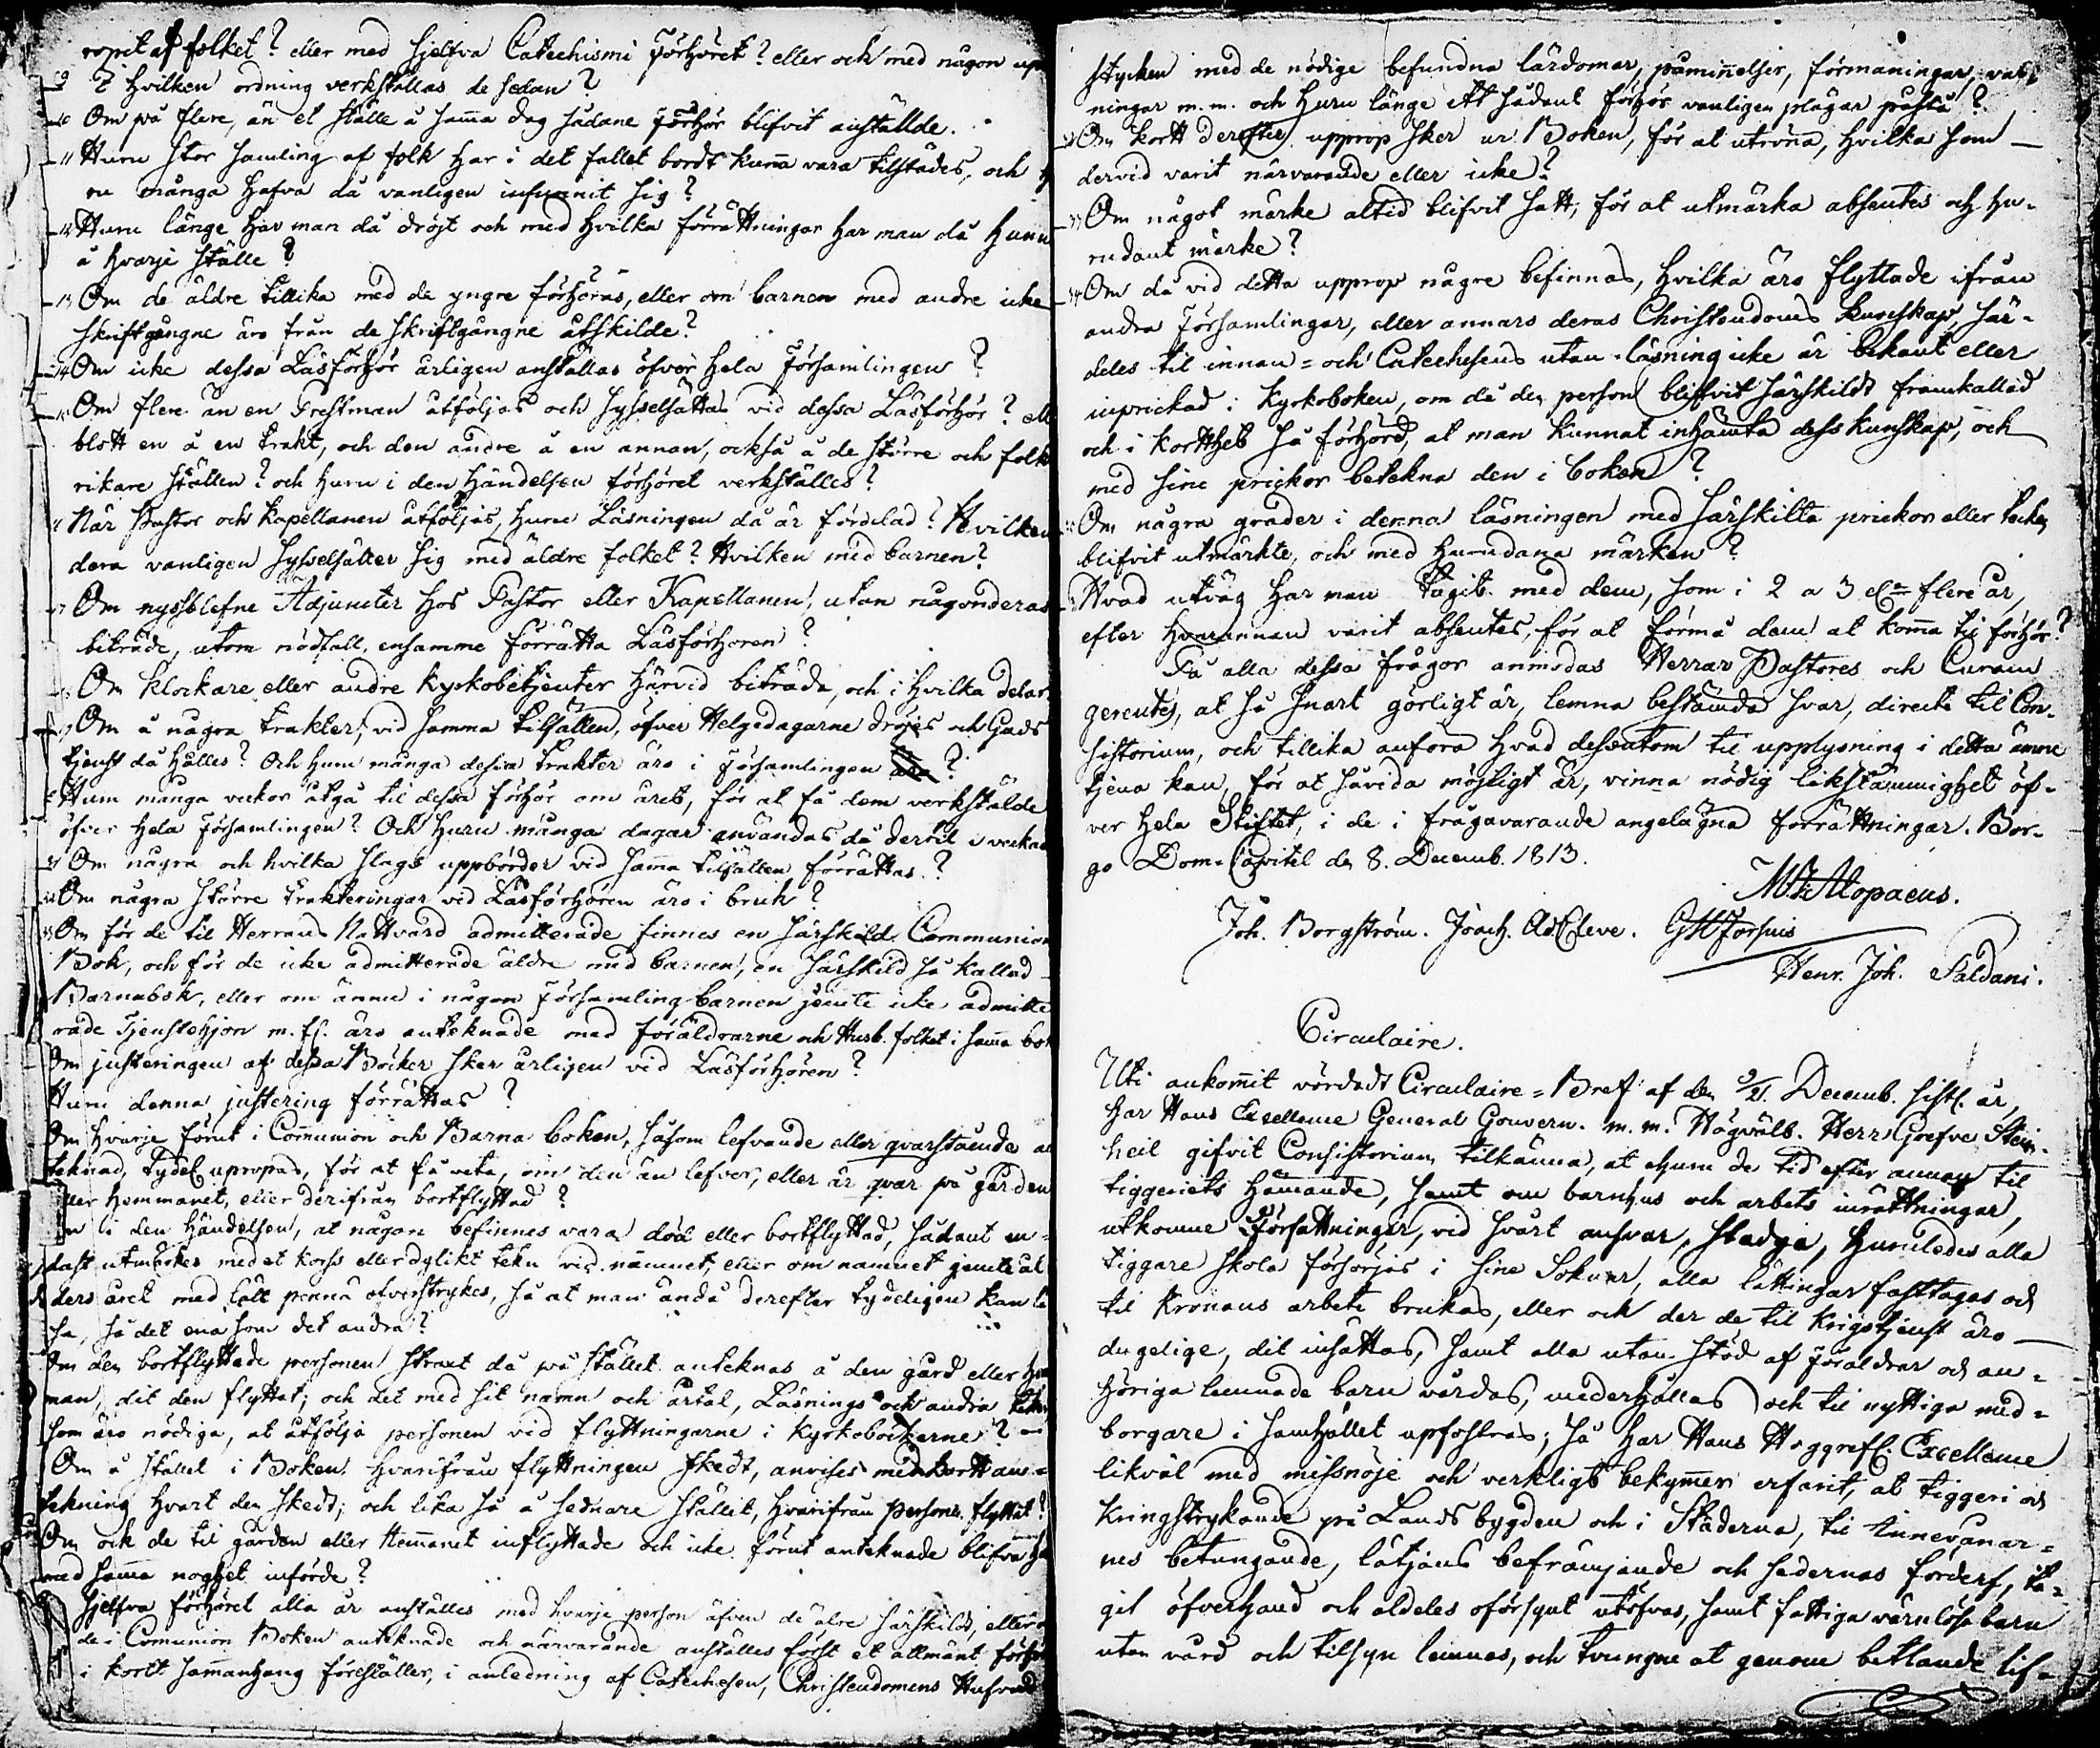 ropet af folket? eller med sjelfva Catechismi Förhöret? eller och med någon
9 I hvilken ordning verkställas de sedan?
10 Om på flere, än et ställe å sam̄a dag sådane Förhör blifvit anstälde.
11 Huru stor samling af folk har i det fallet bordt kun̄a vara tilstädes, och
ru många hafva då vanligen infunnit sig?
12 Huru länge har man då dröjt och med hvilka förrättningar har man då hun̄
å hvarje ställe?
13 Om de äldre tillika med de yngre förhöras, eller om barnen med andre icke
skriftgångne äro från de skriftgångne åtskilde?
14 Om icke dessa Läsförhör årligen anställas öfver hela Församlingen?
15 Om flere än en Prestman åtföljas och sysselsättas vid dessa Läsförhör? ell
blott en å en trakt, och den andre å en annan, också å de större och folk
rikare ställen? och huru i den händelsen förhöret verkställes?
16 När Pastor och Kapellanen åtföljas, huru Läsningen då är fördelad? Hvilken
dera vanligen sysselsätter sig med äldre folket? Hvilken med barnen?
17 Om nyssblefne Adjuncter hos Pastor eller Kapellanen, utan någonderas
biträde, utom nödfall, ensamme förrätta Läsförhören?
18 Om klockare eller andre kyrkobetjenter härvid biträda, och i hvilka delar
19 Om å några trakter, vid samma tilfällen, öfver Helgedagarne dröjes och Guds
tjenst då hålles? Och huru många dessa trakter äro i Församlingen äro?
20 Huru många veckor åtgå til dessa förhör om året, för at få dem verkstälde
öfver hela Församlingen? Och huru många dagar användas då dertil i veckan
21 Om några och hvilka slags uppbörder vid sam̄a tilfällen förrättas?
22 Om några större trakteringar vid Läsförhören äro i bruk?
23 Om för de til Herrans Nattvard admitterade finnes en särskild Communion
Bok, och för de icke admitterade äldre med barnen, en särskild så kallad
Barnabok, eller om ännu i någon Församling barnen jemte icke admitte
rade Tjenstehjon m. fl. äro anteknade med föräldrarne och Husb. folket i sam̄a bok
Om justeringen af dessa Böcker sker årligen vid Läsförhören?
Huru denna justering förrättas?
Om hvarje förut i Com̄union och Barna boken, såsom lefvande eller qvarstående an
teknad, tydel. upropas, för at få veta, om den än lefver, eller är qvar på gården
eller hemmanet, eller derifrån bortflyttad?
Om i den händelsen, at någon befinnes vara död eller bortflyttad, sådant en-
dast utmärkes med et korss eller dylikt tekn vid namnet, eller om namnet jemte ål
ders året med lätt penna öfverstrykes, så at man ändå derefter tydeligen kan lä
sa, så det ena som det andra?
Om den bortflyttade personen straxt då på stället anteknas å den gård eller hem
man, dit den flyttat; och det med sit namn och årtal, Läsnings och andra tekn
som äro nödiga, at åtfölja personen vid flyttningarne i Kyrkoböckerne?
Om å stället i Boken hvarifrån flyttningen skedt, anvises med kort an-
tekning hvart den skedt; och lika så å sednare stället, hvarifrån personen flyttat?
Om ock de til gården eller Hem̄anet inflyttade och icke förut anteknade blifva
med sam̄a noghet införde?
sjelfva förhöret alla år anställes med hvarje person äfven de äldre särskildt, eller
de i Com̄union Boken anteknade och närvarande anställes först et allmänt förhör
i kort sam̄anhang föreställer, i anledning af Catechesen, Christendomens Hufvud
stycken med de nödige befundna lärdomar, påmin̄elser, förmaningar, var
ningar m. m. och huru länge ett sådant förhör vanligen plägar påstå?
Om kort derefter upprop sker ur Boken, för at utröna, hvilka som
dervid varit närvarande eller icke?
Om något märke altid blifvit satt, för at utmärka absentes och hu-
rudant märke?
Om då vid detta upprop några befinnas, hvilka äro flyttade ifrån
andra Församlingar, eller annars deras Christendoms kunskap, sär-
deles til innan= och Catechesens utan-läsning icke är bekant eller
inprickad i Kyrkoboken, om då den person blifvit särskildt framkallad
och i korthet så förhörd, at man kunnat inhämta dess kunskap, och
med sine prickor betekna den i boken?
Om några grader i denna läsningen med särskilte prickor eller tecken
blifvit utmärkte, och med hurudana märken?
Hvad utväg har man tagit med dem, som i 2 a 3 elr flere år,
efter hvarannan varit absentes, för at förmå dem at kom̄a til förhör?
På alla dessa frågor anmodas Herrar Pastores och Curam
gerentes, at så snart görligt är, lemna bestämda svar, directe til Con-
sistorium, och tillika anföra hvad dessutom til upplysning i detta ämne
tjena kan, för at såvida möjligt är, vinna nödig likstämmighet öf-
ver hela Stiftet, i de i frågavarande angelägna förrättningar. Bor-
go Dom-Capitel den 8. Decemb. 1813.
M. Alopaeus.
Joh. Borgström. Joach. Ad. Cleve. G H Forsius
Henr. Joh. Saldani.
Circulaire.
Uti ankom̄it vördadt Circulaire=Bref af den 9/21. Decemb. sistl. år,
har Hans Excellence General Gouvern. m. m. Högvälb. Herr Grefve Stein-
heil gifvit Consistorium tilkänna, at ehuru de tid efter annan til
tiggeriets häm̄ande, samt om barnhus och arbets inrättningar,
utkomne Författningar, vid svårt ansvar, stadga, huruledes alla
tiggare skola försörjas i sine Soknar, alla lättingar fasttagas och
til Kronans arbete brukas, eller och der de til krigstjenst äro
dugelige, dit insättas, samt alla utan stöd af föräldrar och an-
höriga lemnade barn vårdas, underhållas och til nyttiga med-
borgare i samhället upfostras; så har Hans Höggrefl. Excellence
likväl med missnöje och verkligt bekym̄er erfarit, at tiggeri och
kringstrykande på Landsbygden och i Städerna, til Innevånar-
nes betungande, lättjans befrämjande och sedernas förderf, ta-
git öfverhand och aldeles oförsynt utöfvas, samt fattiga värnlösa barn
utan vård och tilsyn lemnas, och tvungne at genom betlande lif-